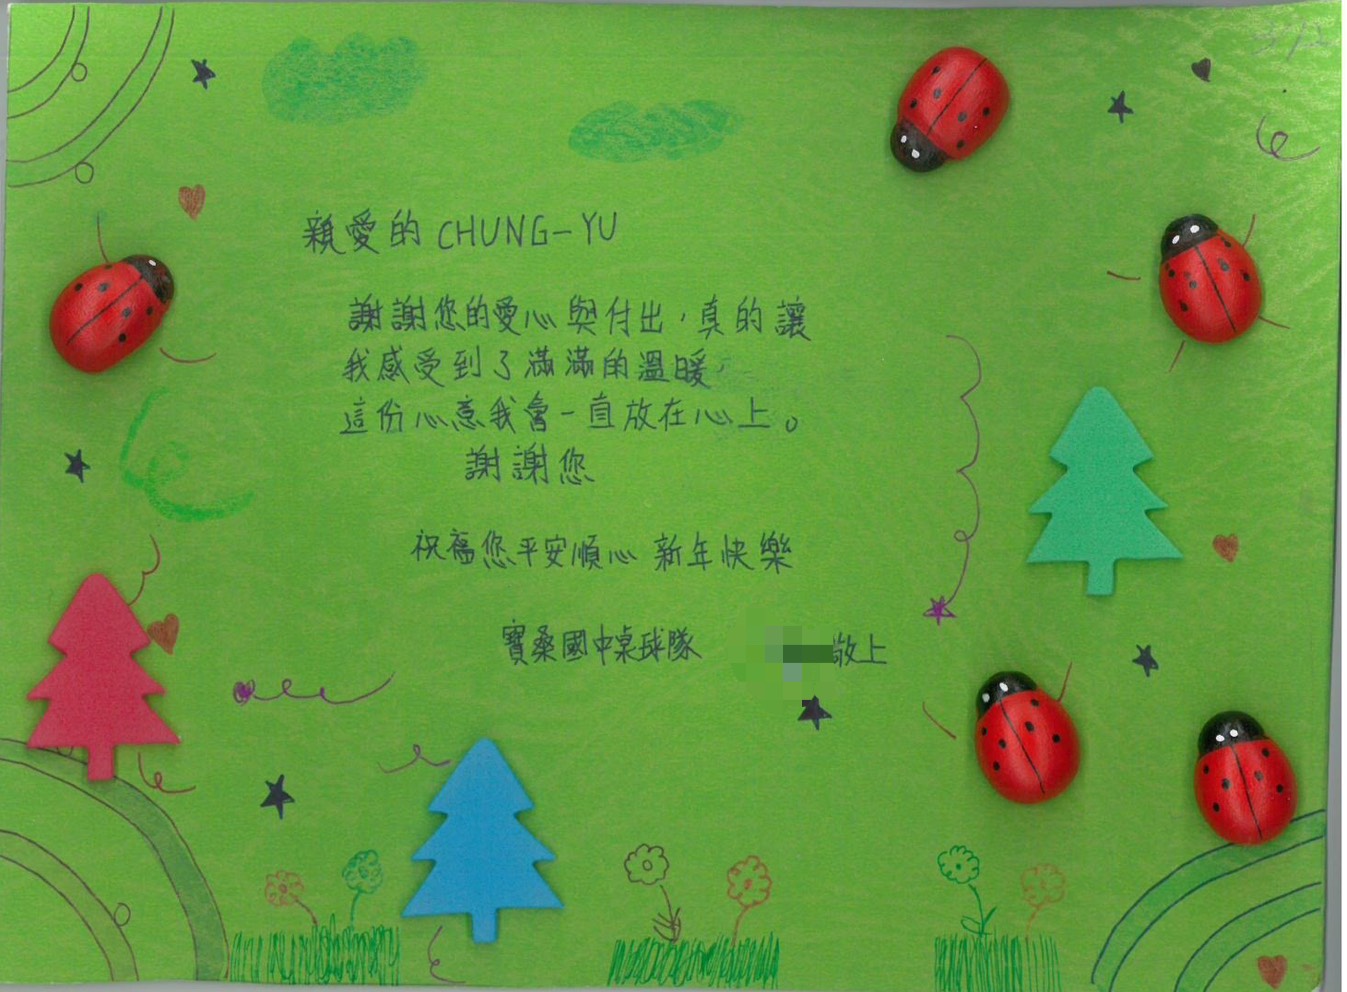 親愛的 CHUNG-YU
謝謝您的愛心與付出，真的讓
我感受到了滿滿的溫暖，
這份心意我會一直放在心上。
謝謝您
祝福您平安順心 新年快樂
寶桑國中桌球隊 敬上